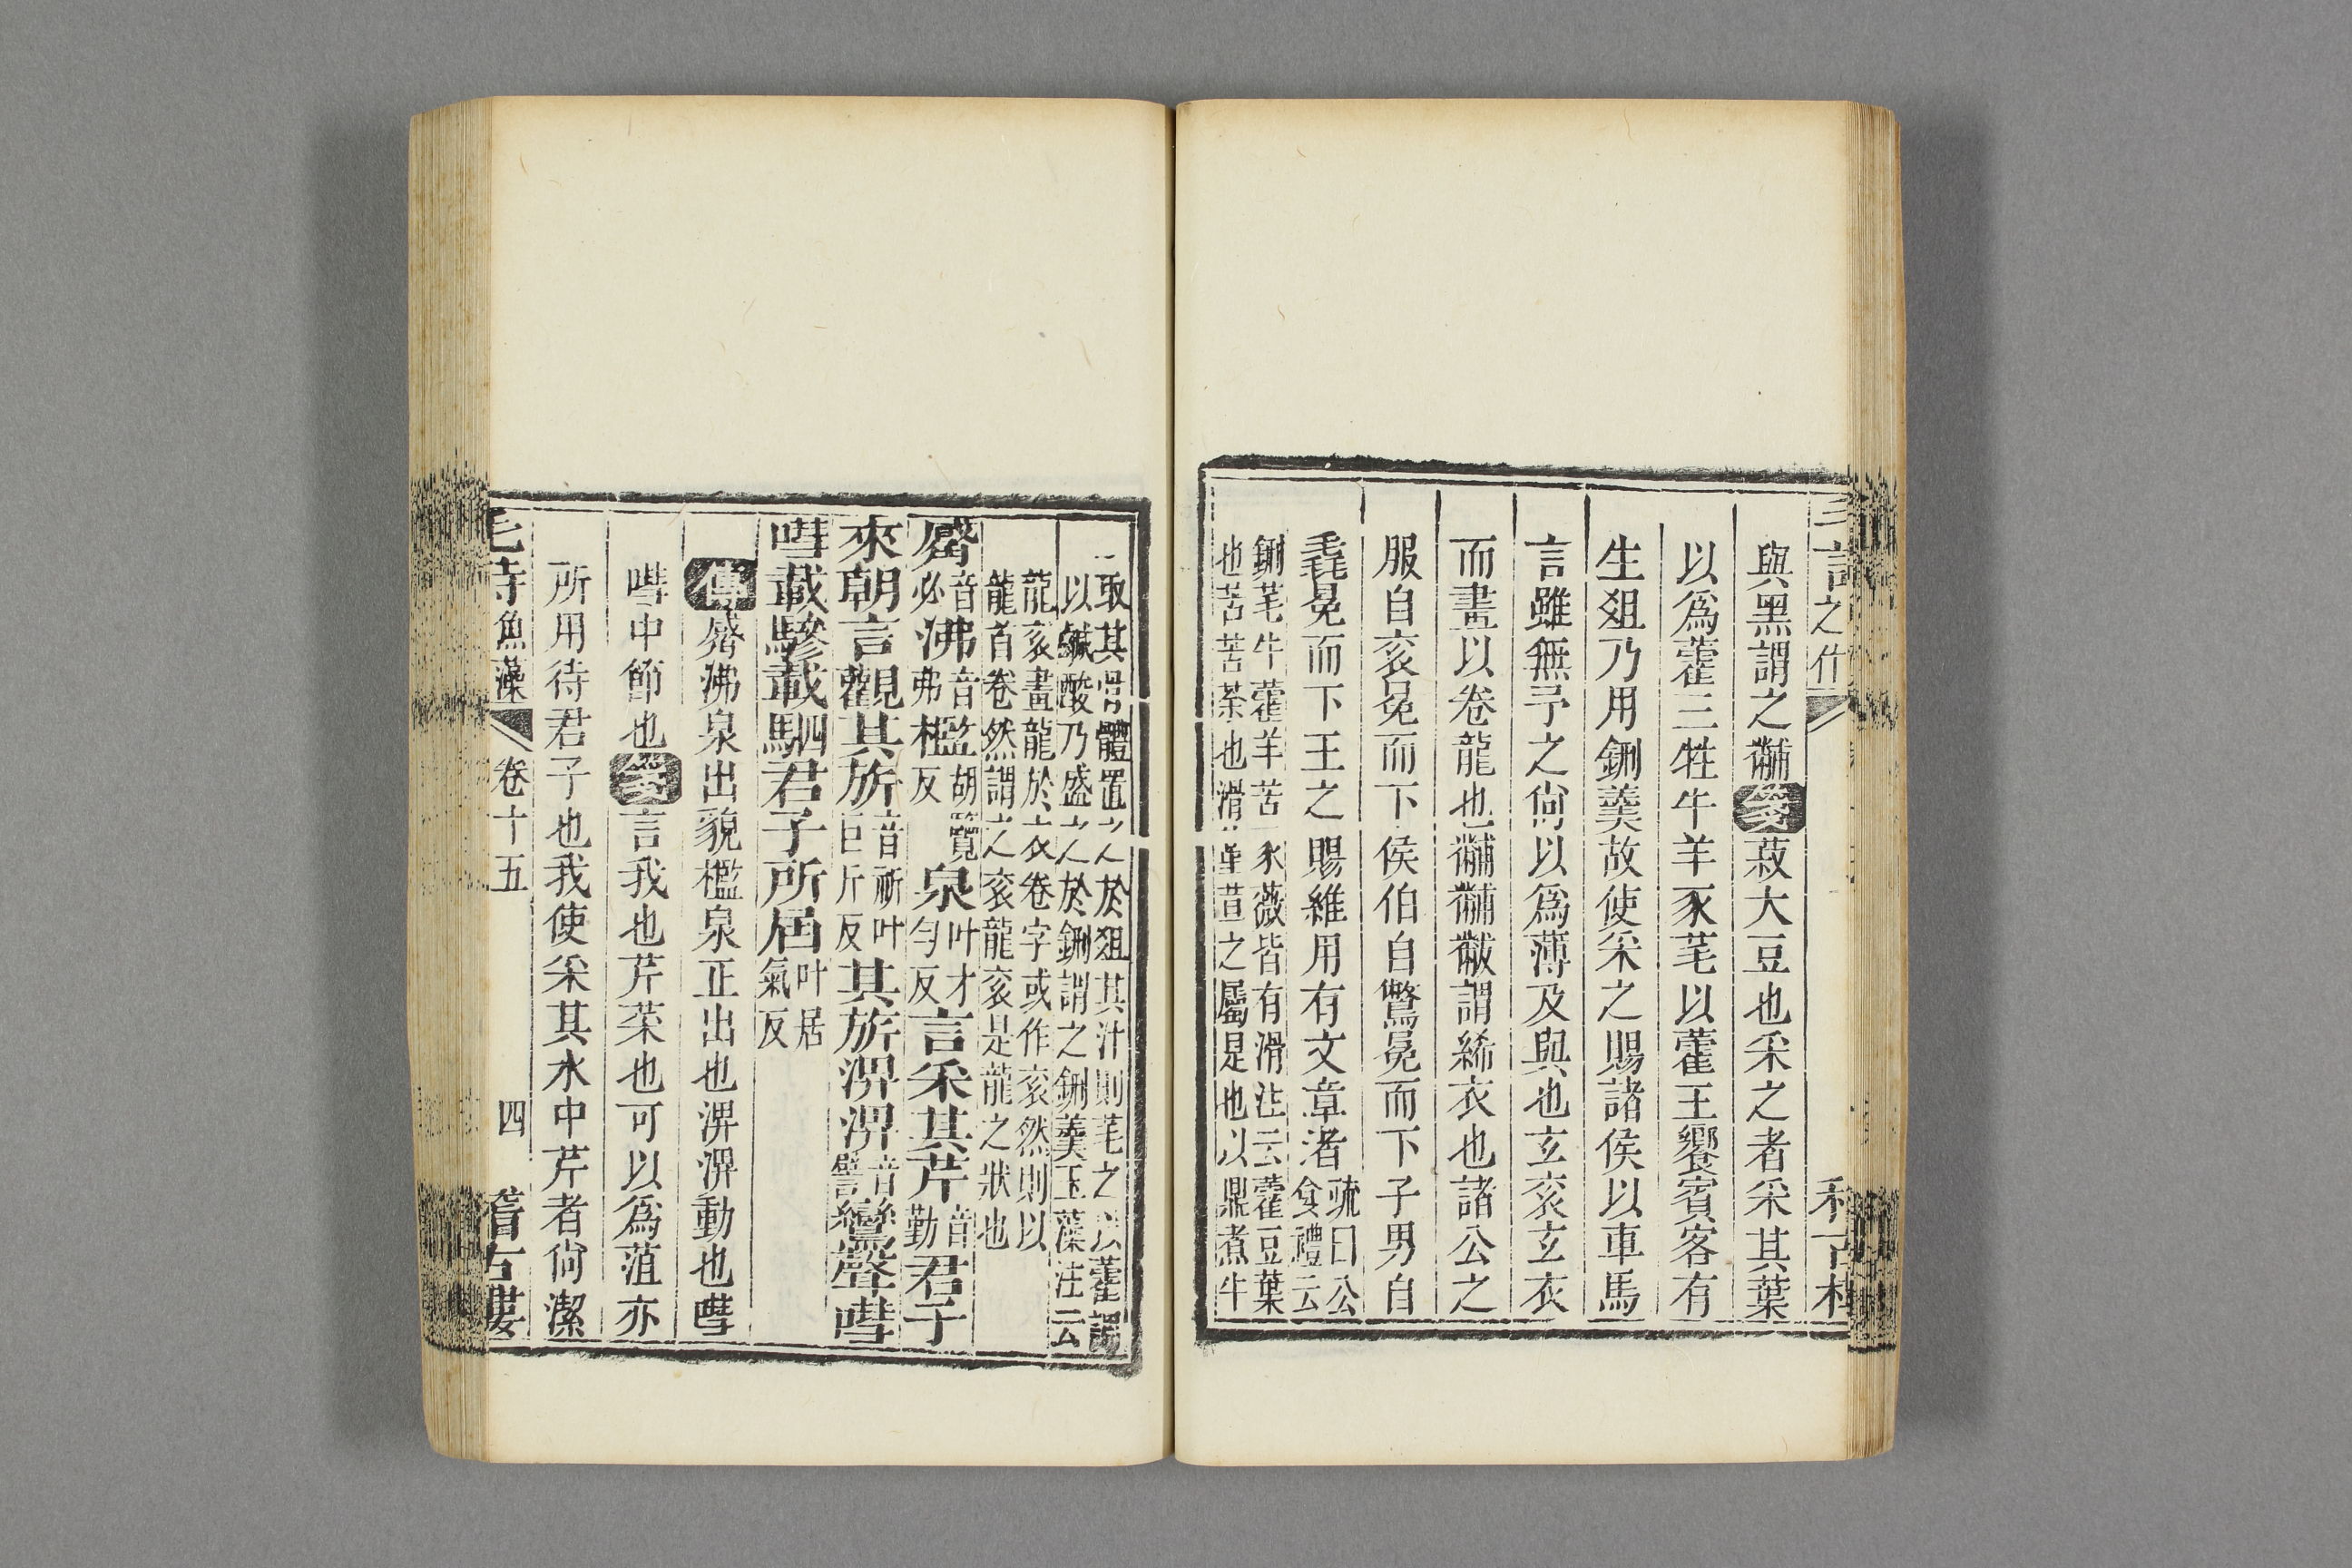 與黑謂之黼箋菽大豆也采之者采其葉
以爲藿三牲牛羊豕芼以藿王饗賓客有
生俎乃用鉶羹故使采之賜諸侯以車馬
言雖無予之尙以爲薄及與也玄袞玄衣
而畫以卷龍也黼黼黻謂絺衣也諸公之
服自袞冕而下侯伯自鷩冕而下子男自
毳冕而下王之賜維用有文章者疏曰公
食禮云
鉶芼牛藿羊苦豕薇皆有滑注云藿豆葉
也苦苦荼也滑堇荁之屬是也以鼎煮牛
取其骨體置之於俎其汁則芼之以藿調
以鹹酸乃盛之於鉶謂之鉶羹玉藻注云
龍袞畫龍於衣卷字或作袞然則以
龍首卷然謂之袞龍袞是龍之狀也
觱音必沸音弗檻胡覽反泉叶才勻反言采其芹音勤君子
來朝言觀其旂音祈叶巨斤反其旂淠淠音譬鸞聲嘒
嘒載驂載駟君子所屆叶居氣反
傳觱沸泉出貌檻泉正出也淠淠動也嘒
嘒中節也箋言我也芹菜也可以爲菹亦
所用待君子也我使采其水中芹者尙潔
毛詩魚藻 卷十五 四 稽古樓